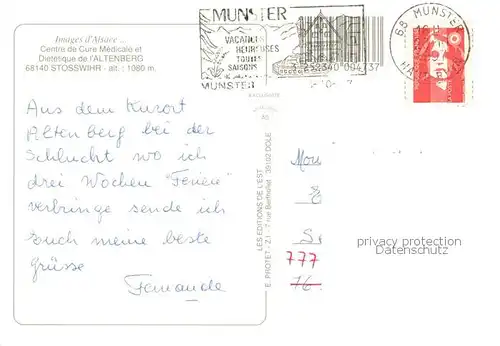 Images d'Alsace ...
Centre de Cure Médicale et
Diététique de l'ALTENBERG
68140 STOSSWIHR - alt. : 1080 m.
MUNSTER
VACANCES
HEUREUSES
TOUTES
SAISONS
MUNSTER
3 252340 004737
68 MUNSTER
HAUT-RHIN
Aus dem Kurort
Altenberg bei der
Schlucht wo ich
drei Wochen "Ferien"
verbringe sende ich
Euch meine beste
Grüsse
Fernande
LES EDITIONS DE L'EST
E. PROTET - Z.I. - 7 rue Berthollet - 39102 DOLE
Mons
S
777
76
privacy protection
Datenschutz